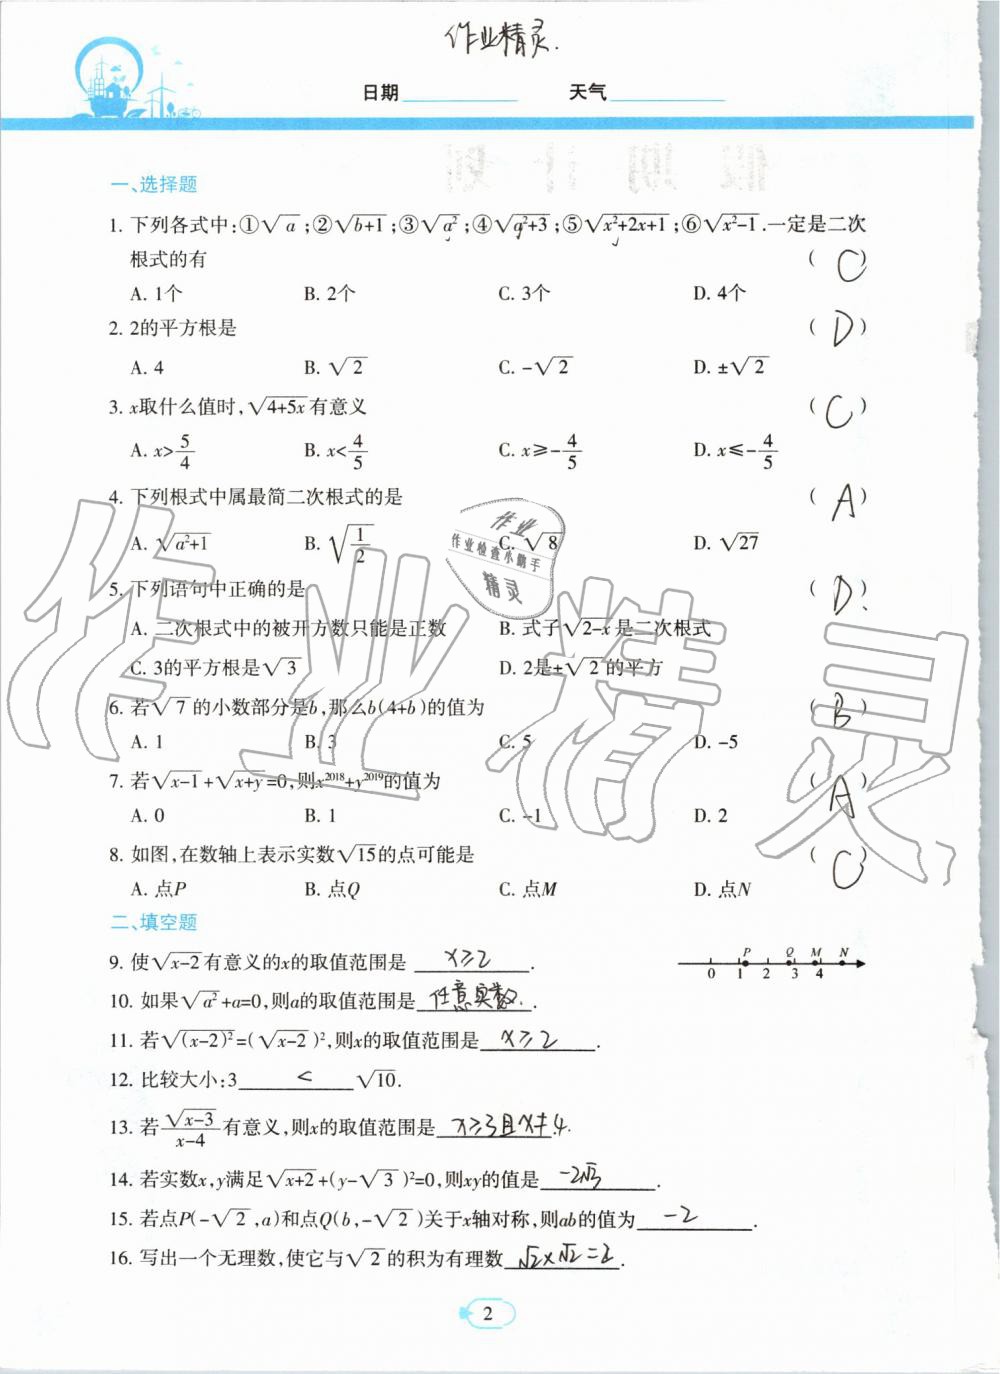 作业精灵.
日期 天气
假期计划
一、选择题
1. 下列各式中:①√a;②√(b+1);③√a²;④√(a²+3);⑤√(x²+2x+1);⑥√(x²-1).一定是二次
根式的有 ( C )
A. 1个 B. 2个 C. 3个 D. 4个
2. 2的平方根是 ( D )
A. 4 B. √2 C. -√2 D. ±√2
3. x取什么值时,√(4+5x)有意义 ( C )
A. x>5/4 B. x<4/5 C. x≥-4/5 D. x≤-4/5
4. 下列根式中属最简二次根式的是 ( A )
A. √(a²+1) B. √(1/2) C. √8 D. √27
5. 下列语句中正确的是 ( D. )
A. 二次根式中的被开方数只能是正数 B. 式子√(2-x)是二次根式
C. 3的平方根是√3 D. 2是±√2的平方
6. 若√7的小数部分是b,那么b(4+b)的值为 ( B )
A. 1 B. 3 C. 5 D. -5
7. 若√(x-1)+√(x+y)=0,则x²⁰¹⁸+y²⁰¹⁹的值为 ( A )
A. 0 B. 1 C. -1 D. 2
8. 如图,在数轴上表示实数√15的点可能是 ( C )
A. 点P B. 点Q C. 点M D. 点N
二、填空题
9. 使√(x-2)有意义的x的取值范围是 x≥2 .
P Q M N
0 1 2 3 4
10. 如果√a²+a=0,则a的取值范围是 任意实数. .
11. 若√(x-2)²=(√(x-2))²,则x的取值范围是 x≥2 .
12. 比较大小:3 < √10.
13. 若√(x-3)/(x-4)有意义,则x的取值范围是 x≥3且x≠4. .
14. 若实数x,y满足√(x+2)+(y-√3)²=0,则xy的值是 -2√3 .
15. 若点P(-√2,a)和点Q(b,-√2)关于x轴对称,则ab的值为 -2 .
16. 写出一个无理数,使它与√2的积为有理数 √2×√2=2 .
2
作业
作业检查小助手
精灵
作业精灵